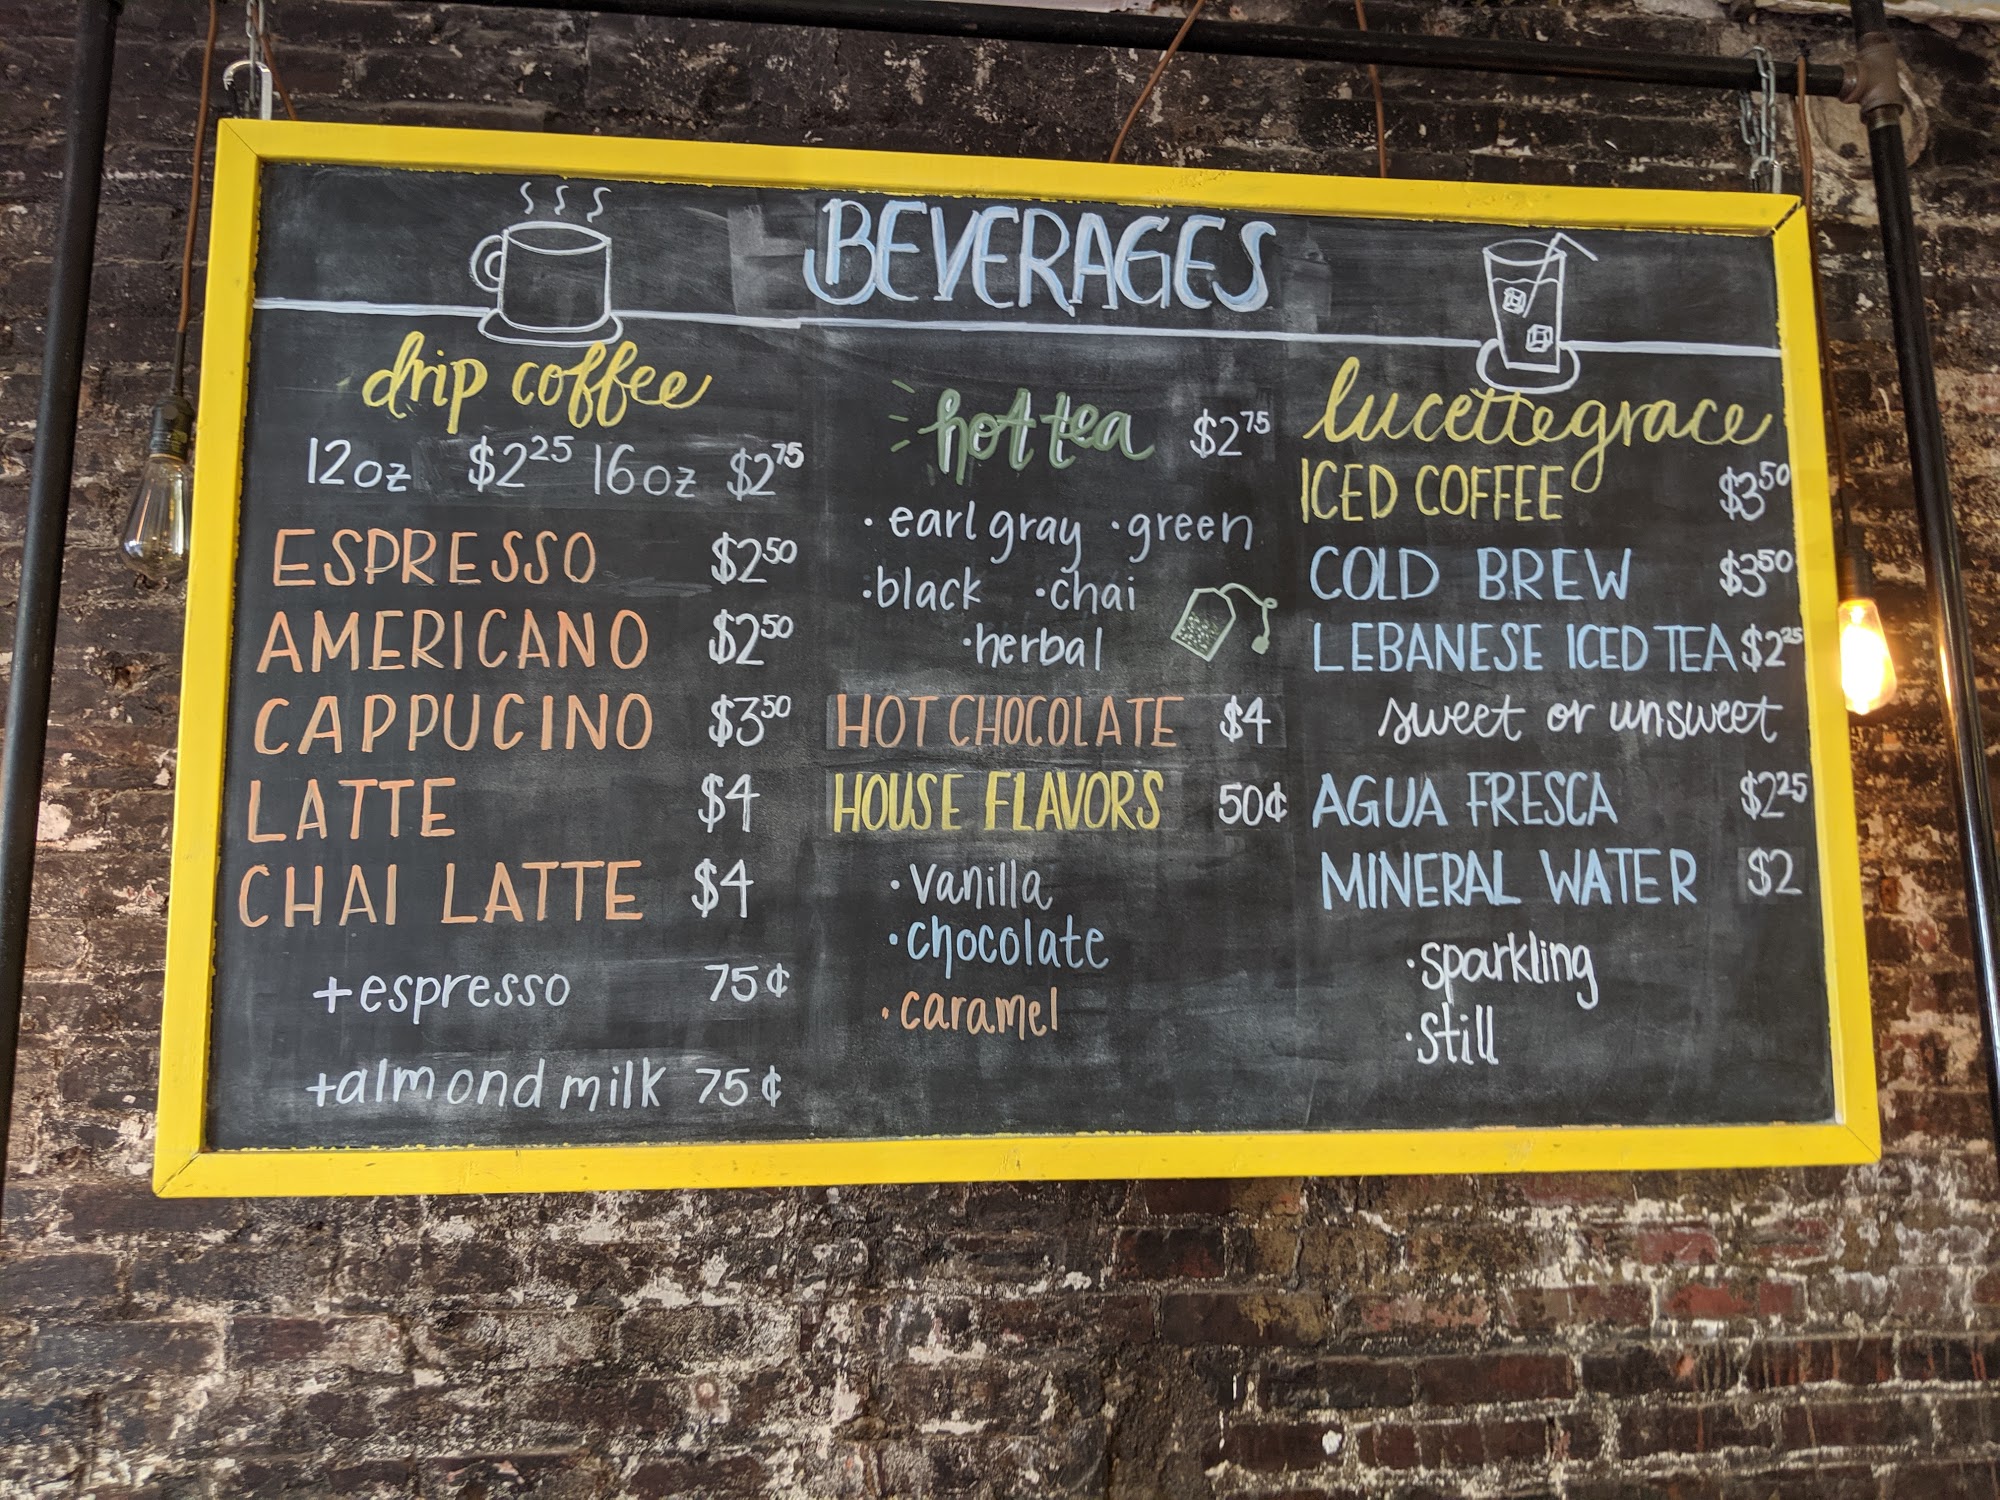 BEVERAGES
drip coffee
12oz $2.25 16oz $2.75
ESPRESSO $2.50
AMERICANO $2.50
CAPPUCINO $3.50
LATTE $4
CHAI LATTE $4
+espresso 75¢
+almond milk 75¢
hot tea $2.75
· earl gray · green
· black · chai
· herbal
HOT CHOCOLATE $4
HOUSE FLAVORS 50¢
· vanilla
· chocolate
· caramel
lucettegrace
ICED COFFEE $3.50
COLD BREW $3.50
LEBANESE ICED TEA $2.25
sweet or unsweet
AGUA FRESCA $2.25
MINERAL WATER $2
· sparkling
· still